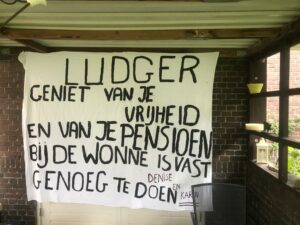 LUDGER
GENIET VAN JE
VRIJHEID
EN VAN JE PENSIOEN
BIJ DE WONNE IS VAST
GENOEG TE DOEN
DENISE
EN
KARIN